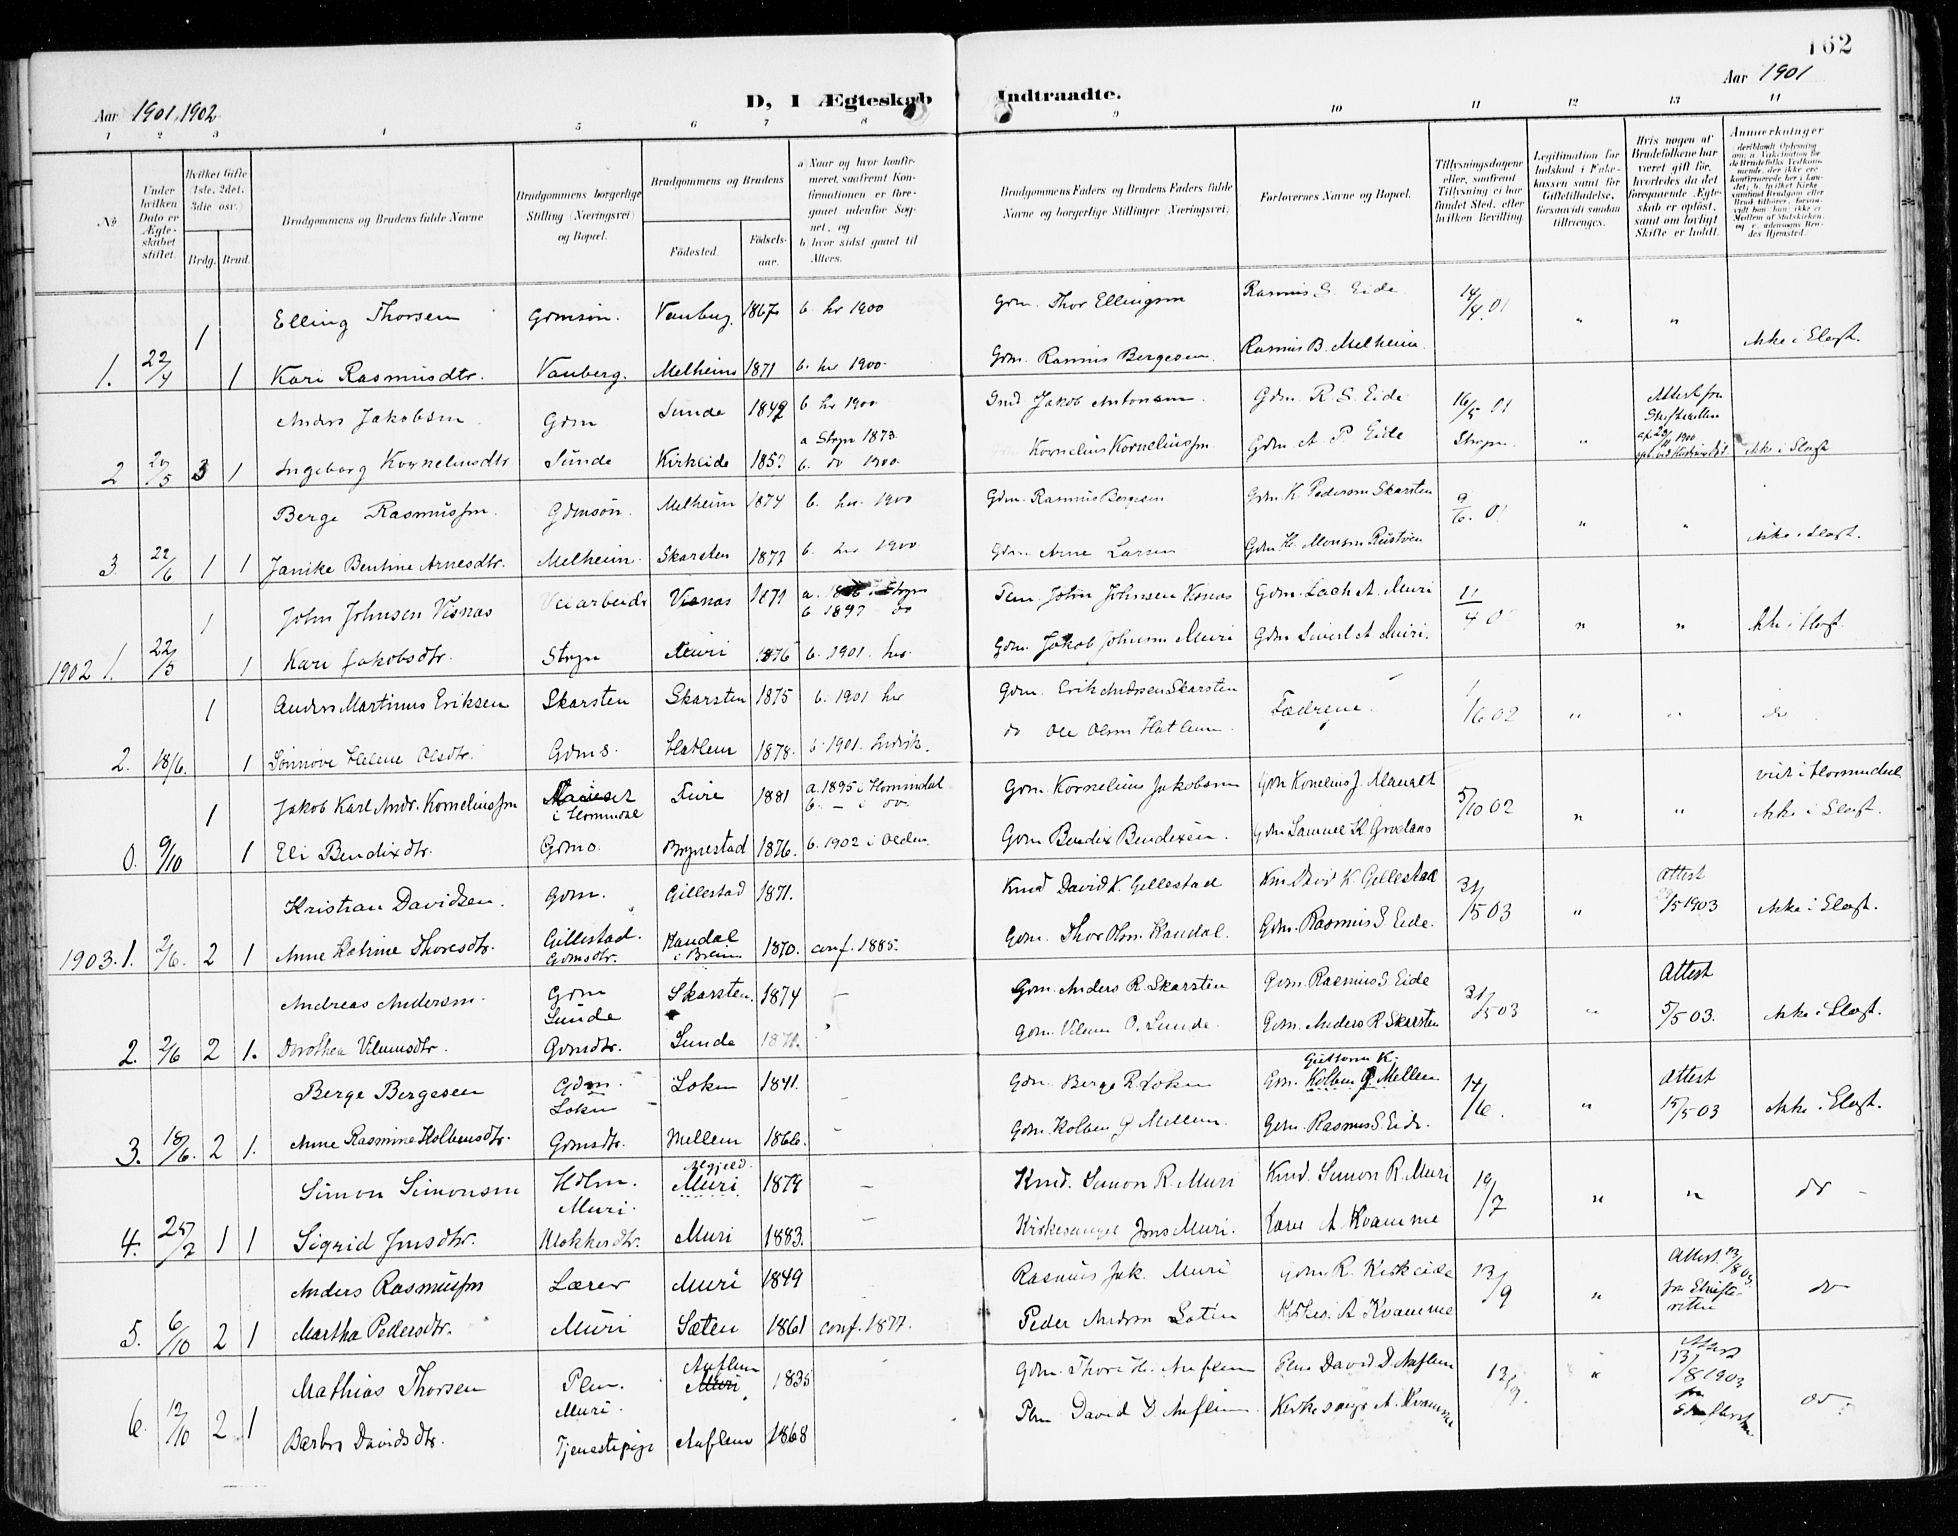 162
Aar 1901, 1902
D, I Ægteskab Indtraadte.
Aar 1901
1 2 3 4 5 6 7 8 9 10 11 12 13 14
No
Under hvilken Dato er Ægteskabet stiftet.
Hvilket Gifte (1ste, 2det, 3die osv.)
Brdg. Brud.
Brudgommens og Brudens fulde Navne
Brudgommens borgerlige Stilling (Næringsvei) og Bopæl.
Brudgommens og Brudens
Födested. Födsels-aar.
a) Naar og hvor konfirmeret, saafremt Konfirmationen er foregaaet udenfor Sognet, og b) hvor sidst gaaet til Alters.
Brudgommens Faders og Brudens Faders fulde Navne og borgerlige Stillinger (Næringsvei)
Forlovernes Navne og Bopæl.
Tillysningsdagene eller, saafremt Tillysning ei har fundet Sted, efter hvilken Bevilling.
Legitimation for Indskud i Enkekassen samt for Giftetilladelse, forsaavidt saadan tiltrænges.
Hvis nogen af Brudefolkene har været gift før, hvorledes da det foregaaende Ægteskab er oplöst, samt om lovligt Skifte er holdt.
Anmærkninger
Elling Thorsen Gdmsøn. Vanberg. 1867 b. her 1900 Gdm. Thor Ellingsen Rasmus S. Eide 14/4 01 " "
1. 22/4 1 1 Kari Rasmusdtr. Vanberg. Melheim 1871 b. her 1900. Gdm. Rasmus Bergesen. Rasmus B. Melheim. Ikke i Slegt.
Anders Jakobsen Gdm Sunde b her 1900 Jakob Antonsen Gdm. R. S. Eide 16/5 01 Attest fra Skifteretten
2 3 1 Ingeborg Kornelinsdtr Sunde Kirkeide a Stryn 1873 b. do 1900 Kornelius Korneliussen Gdm A. P. Eide Stryn. " Ikke i Slegt
Berge Rasmussen. Gdmsøn. Melheim 1874 b. her. 1900 Gdm. Rasmus Bergesen Gdm K. Pedersen Skarsten 9/6. 01 " "
3. 22/6 1 1 Janike Bentine Arnesdtr. Melheim. Skarsten 1877 b. her 1900 Gdm. Arne Larsen Gdm H. Monsen Rustøen Ikke i Slegt.
John Johnsen Visnas Veiarbeidr Visnas 1871 b 1897 do John Johnsen Visnas Gdm. Zach A. Muri 11/4 " "
1902 1. 22/5 1 1 Kari Jakobsdtr. Stryn Muri 1876 b. 1901. her. Gdm. Jakob Johnsen Muri Gdm Sivert A. Muri. Ikke i Slegt.
Anders Martinus Eriksen Skarsten Skarsten 1875 b. 1901 her Gdm. Erik Andersen Skarsten Fædrene. 1/6 02 " " do
2. 18/6. 1 1 Sønnøve Helene Olsdtr. Gdms. Hatlem 1878. b. 1901. Indvik. do Ole Olsen Hatlem.
Jakob Karl Andr. Korneliussen i Hornindal 1881 a. 1895 i Hornindal b. — i do Gdm. Kornelius Jakobsen 5/10 02 " " viet i Hornindal
0. 9/10 1 1 Eli Bendixdtr. Brynestad 1876. b. 1902 i Olden. Gdm Bendix Bendixsen. Gdm Samuel K. Grodaas Ikke i Slegt.
Kristian Davidsen. Gdm. Gillestad 1871. Kmd David K. Gillestad Gillestad 31/5 03 " Attest /5 1903 Ikke i Slegt.
1903. 1. 2/6. 2 1 Anne Katrine Thoresdtr. Gillestad. Gdmsdtr. Kandal i Breim 1870. conf. 1885. Gdm. Thor Olsn. Kandal. Gdm. Rasmus S Eide.
Andreas Andersen. Gdm Sunde Skarsten. 1874 — Gdm. Anders R. Skarsten Gdm. Rasmus S Eide 31/5 03 " Attest 5/5 03. Ikke i Slegt.
2. 2/6 2 1. Dorothea Vilumsdtr. Gdmsdtr. Sunde Gdm. Vilum O. Sunde. Gdm. Anders R Skarsten
Berge Bergesen Gdm. Loken Loken 1841. — Gdm. Berge R. Loken Guttorm K. Mellem 14/6. " Attest 15/5 03 Ikke i Slegt.
3. 18/6. 2 1. Anne Rasmine Kolbensdtr. Gdmsdtr. Mellem 1866. — Gdm. Kolben G Mellem. Gdm. Rasmus S. Eide.
Simon Simonsen Holm. Muri. Muri 1878 — Kmd. Simon R. Muri Kmd. Simon R. Muri 19/7 " " do —
4. 25/7 1 1 Sigrid Jonsdtr. Klokkerdtr. Muri 1883. — Kirkesanger Jons Muri. Lærer A Kvamme
Anders Rasmussen Lærer Muri 1849 Rasmus Jak. Muri Gdm. R. Kirkeide 13/9 " Attest 13/8 03 do
5. 6/10 2 1 Martha Pedersdtr. Muri Sæten 1861 conf. 1877. Peder Andersen Sæten Kirkes. A Kvamme
Mathias Thorsen Plm. Muri. Auflem Muri 1835 Gdm. Thore H. Auflem Plm David D. Auflem 13/9. " Attest 13/8 1903 do
6. 12/10 2 1 Barbro Davidsdtr. Tjenestepige Auflem 1868 Plm David D. Auflem Kirkesangr A. Kvamme